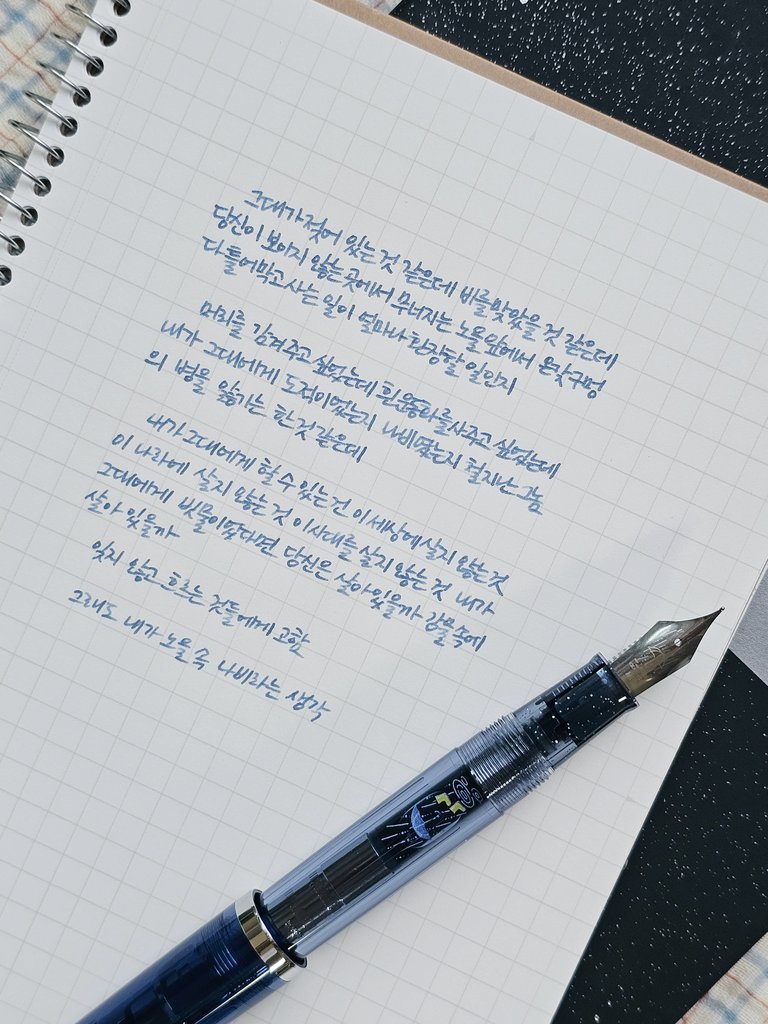 그대가 젖어 있는 것 같은데 비를 맞았을 것 같은데
당신이 보이지 않는 곳에서 무너지는 노을 앞에서 온갖 구멍
다 틀어막고 사는 일이 얼마나 환장할 일인지
머리를 감겨주고 싶었는데 흰 운동화를 사주고 싶었는데
내가 그대에게 도적이었는지 나비였는지 철 지난 그놈
의 병을 앓기는 한 것 같은데
내가 그대에게 할 수 있는 건 이 세상에 살지 않는 것
이 나라에 살지 않는 것 이 시대를 살지 않는 것 내가
그대에게 빗물이었다면 당신은 살아 있을까 강물 속에
살아 있을까
잊지 않고 흐르는 것들에게 고함
그래도 내가 노을 속 나비라는 생각